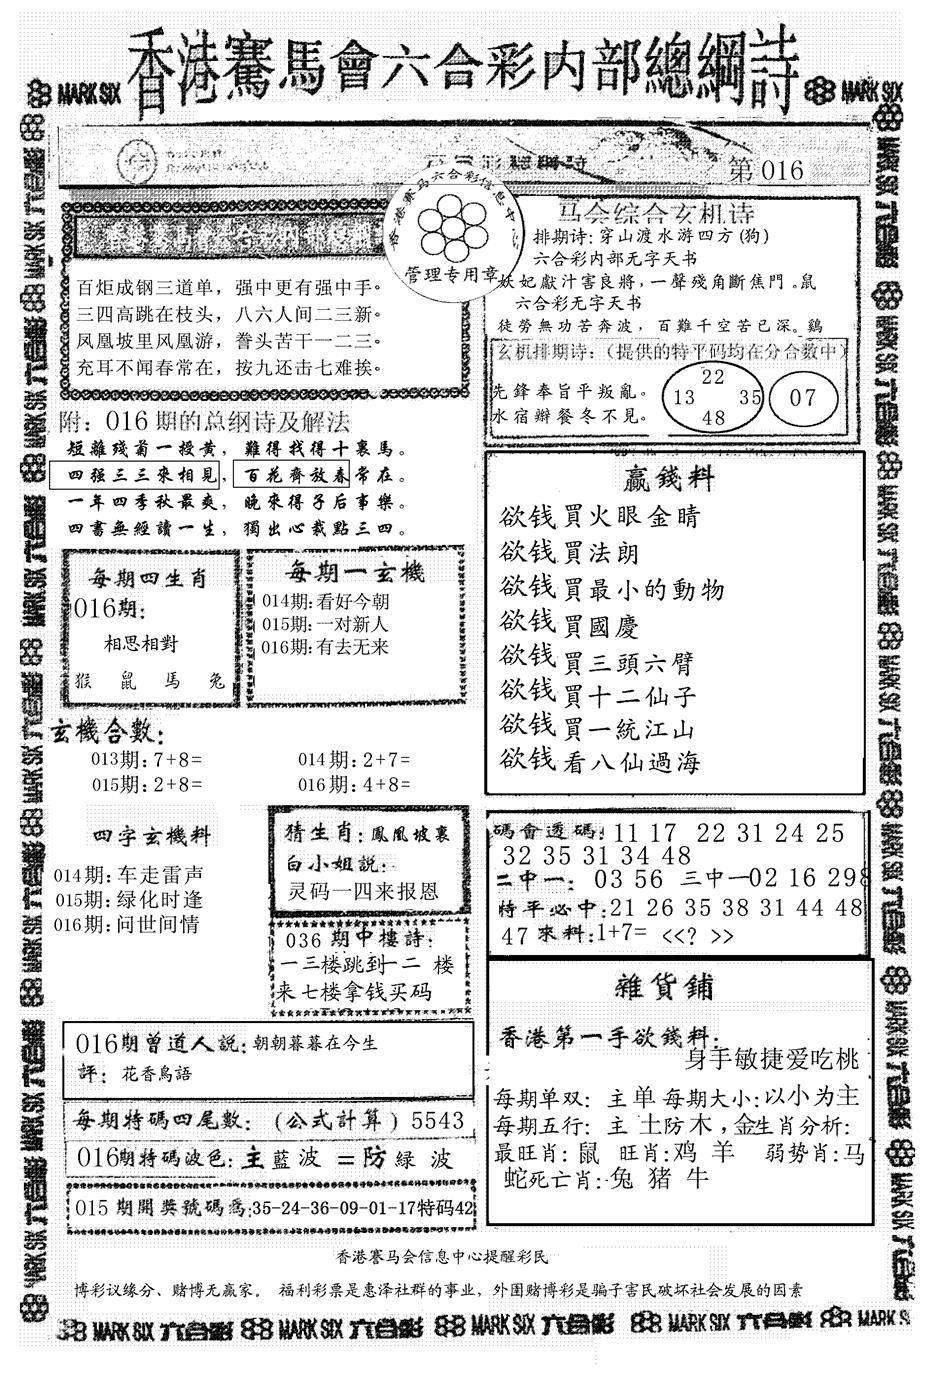 香港賽馬會六合彩内部總綱詩
MARK SIX
MARK SIX
第016
香港赛马六合彩信息中心
管理专用章
百炬成钢三道单，强中更有强中手。
三四高跳在枝头，八六人间二三新。
凤凰坡里风凰游，誊头苦干一二三。
充耳不闻春常在，按九还击七难挨。
马会综合玄机诗
排期诗:穿山渡水游四方(狗)
六合彩内部无字天书
妖妃獻汁害良將，一聲殘角斷焦門。鼠
六合彩无字天书
徒勞無功苦奔波，百難千空苦已深。鷄
玄机排期诗：（提供的特平码均在分合数中）
先鋒奉旨平叛亂。
水宿辦餐冬不見。
22
13 35
48
07
附：016期的总纲诗及解法
短離殘菊一授黄，難得找得十裏馬。
四强三三來相見，百花齊放春常在。
一年四季秋最爽，晚來得子后事樂。
四書無經讀一生，獨出心裁點三四。
每期四生肖
016期：
相思相對
猴 鼠 馬 兔
每期一玄機
014期:看好今朝
015期:一对新人
016期:有去无来
玄機合數：
013期:7+8=
014期:2+7=
015期:2+8=
016期:4+8=
四字玄機料
014期:车走雷声
015期:绿化时逢
016期:问世间情
猜生肖:鳳凰坡裏
白小姐説:
灵码一四来报恩
036期中樓詩:
一三楼跳到一二 楼
来七楼拿钱买码
贏錢料
欲钱買火眼金睛
欲钱買法朗
欲钱買最小的動物
欲钱買國慶
欲钱買三頭六臂
欲钱買十二仙子
欲钱買一統江山
欲钱看八仙過海
碼會透碼:11 17 22 31 24 25
32 35 31 34 48
二中一: 03 56 三中一02 16 298
特平必中:21 26 35 38 31 44 48
47 來料:1+7= <<? >>
雜貨鋪
香港第一手欲錢料:
身手敏捷爱吃桃
每期单双: 主单 每期大小:以小为主
每期五行: 主 土防木,金生肖分析:
最旺肖:鼠 旺肖:鸡 羊 弱势肖:马
蛇死亡肖:兔 猪 牛
016期曾道人説:朝朝暮暮在今生
評: 花香鳥語
每期特碼四尾數: (公式計算) 5543
016期特碼波色:主藍波 =防緑 波
015期開獎號碼爲:35-24-36-09-01-17特码42
香港賽马会信息中心提醒彩民
博彩议缘分、赌博无赢家。 福利彩票是惠泽社群的事业，外围赌博彩是骗子害民破坏社会发展的因素
MARK SIX 六合彩 MARK SIX 六合彩 MARK SIX 六合彩 MARK SIX 六合彩 MARK SIX